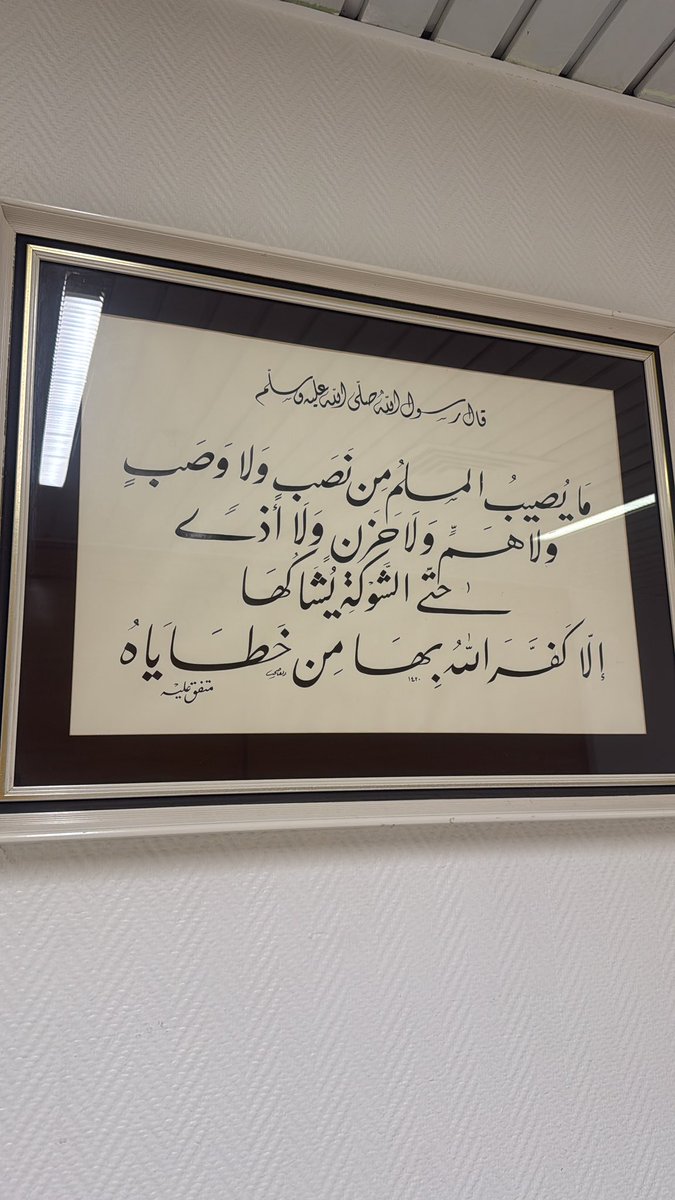 قال رسول الله صلى الله عليه وسلم
مَا يُصيبُ المسلمُ مِن نَصَبٍ وَلا وَصَبٍ
وَلا هَمٍّ وَلَا حَزَنٍ وَلَا أَذًى
حتّى الشَّوْكَةِ يُشَاكُهَا
إلّا كَفَّرَ اللهُ بِهَا مِن خَطَايَاهُ
١٤٢٠
متفق عليه